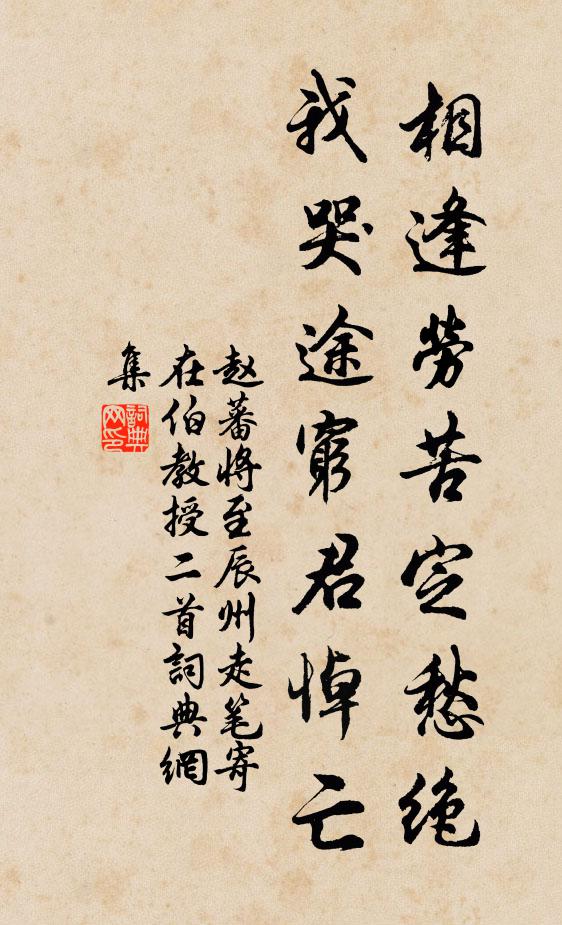 相逢劳苦定愁绝
我哭途穷君悼亡
赵蕃将至辰州走笔寄
在伯教授二首詞典網
集
詞典
网印